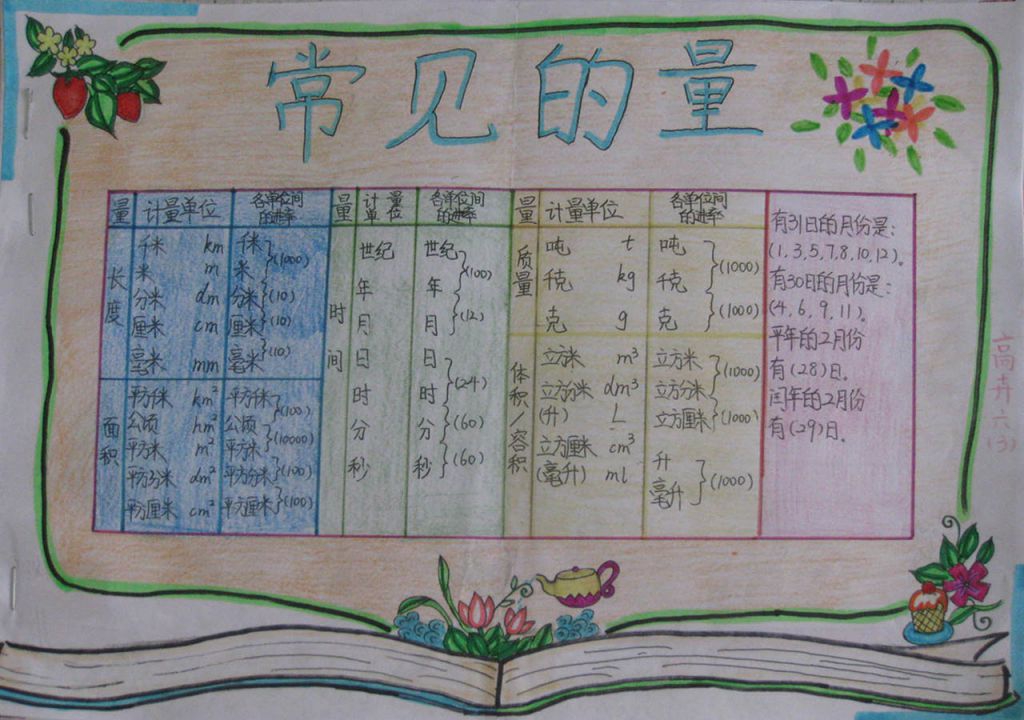 常见的量
量 计量单位 各单位间的进率
长度
千米 km 千米
(1000)
米 m 米
(10)
分米 dm 分米
(10)
厘米 cm 厘米
(10)
毫米 mm 毫米
面积
平方千米 km² 平方千米
(100)
公顷 hm² 公顷
(10000)
平方米 m² 平方米
(100)
平方分米 dm² 平方分米
(100)
平方厘米 cm² 平方厘米
量 计量单位 各单位间的进率
时间
世纪 世纪
(100)
年 年
(12)
月 月
日 日
(24)
时 时
(60)
分 分
(60)
秒 秒
量 计量单位 各单位间的进率
质量
吨 t 吨
(1000)
千克 kg 千克
(1000)
克 g 克
体积/容积
立方米 m³ 立方米
(1000)
立方分米 dm³ 立方分米
(升) L
(1000)
立方厘米 cm³ 立方厘米
(毫升) ml
升
(1000)
毫升
有31日的月份是:
(1,3,5,7,8,10,12)。
有30日的月份是:
(4,6,9,11)。
平年的2月份
有(28)日。
闰年的2月份
有(29)日.
高卉六(3)